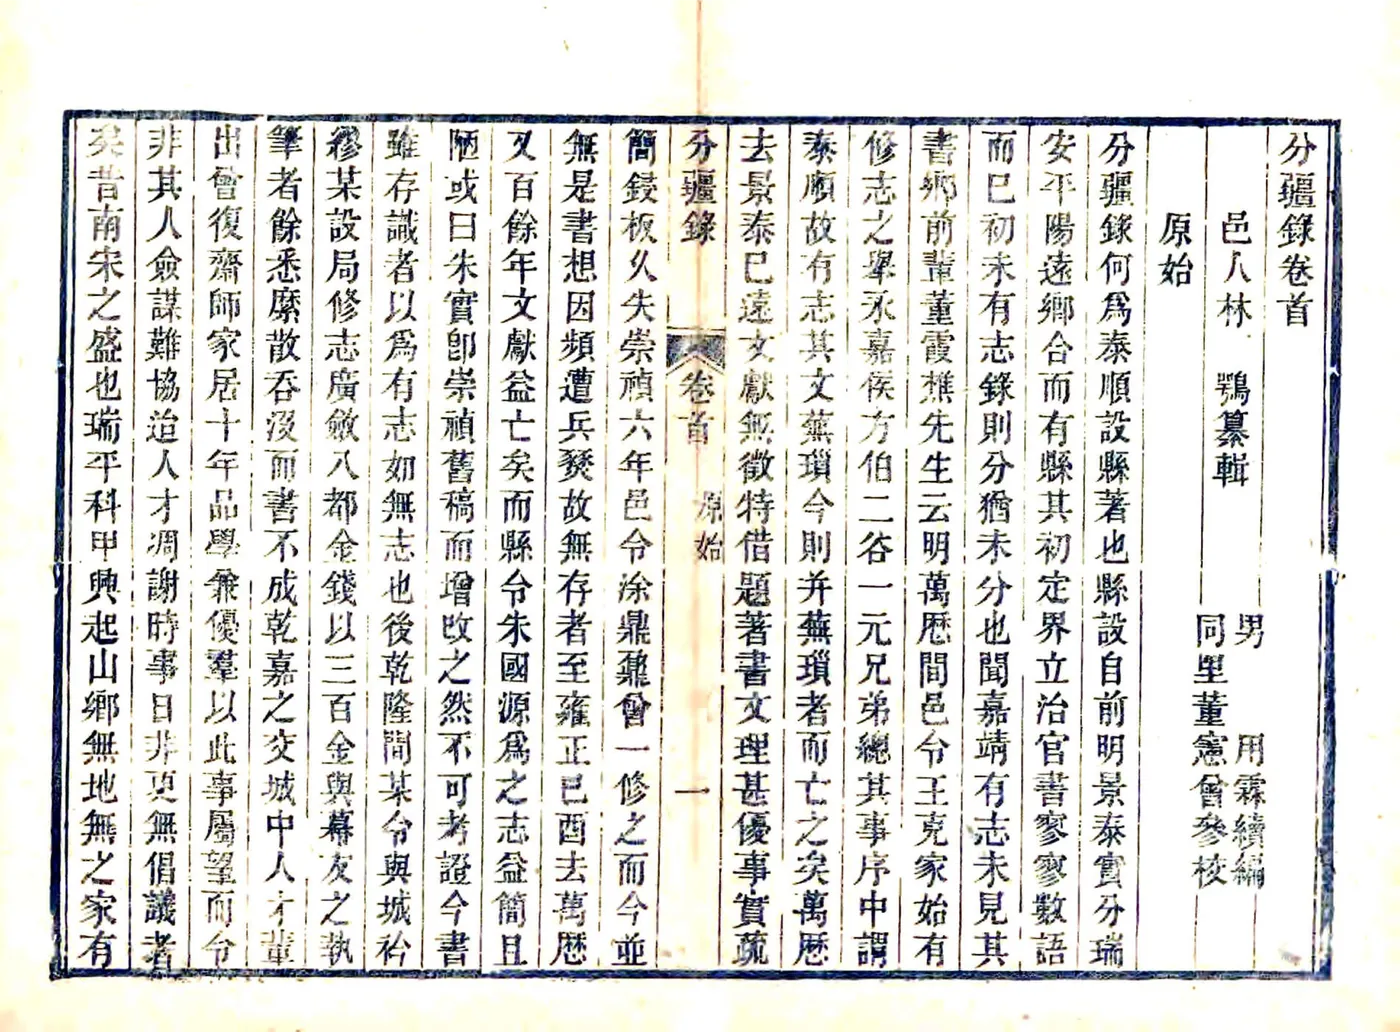 分疆錄卷首
邑人林　鶚纂輯　男　用霖續編
同里董憲曾參校
原始
分疆錄何爲泰順設縣著也縣設自前明景泰實分瑞
安平陽遠鄉合而有縣其初定界立治官書寥寥數語
而已初未有志錄則分猶未分也聞嘉靖有志未見其
書鄉前輩董霞樵先生云明萬厯間邑令王克家始有
修志之舉永嘉侯方伯二谷一元兄弟總其事序中謂
泰順故有志其文蕪瑣今則并蕪瑣者而亡之矣萬厯
去景泰已遠文獻無徵特借題著書文理甚優事實疏
分疆錄　卷首　原始　一
簡鋟板久失崇禎六年邑令涂鼎鼐曾一修之而今並
無是書想因頻遭兵燹故無存者至雍正己酉去萬厯
又百餘年文獻益亡矣而縣令朱國源爲之志益簡且
陋或曰朱實卽崇禎舊稿而增改之然不可考證今書
雖存識者以爲有志如無志也後乾隆間某令與城衿
繆某設局修志廣斂八都金錢以三百金與幕友之執
筆者餘悉縻散吞沒而書不成乾嘉之交城中人才輩
出曾復齋師家居十年品學兼優羣以此事屬望而令
非其人僉謀難協迨人才凋謝時事日非更無倡議者
矣昔南宋之盛也瑞平科甲興起山鄉無地無之家有